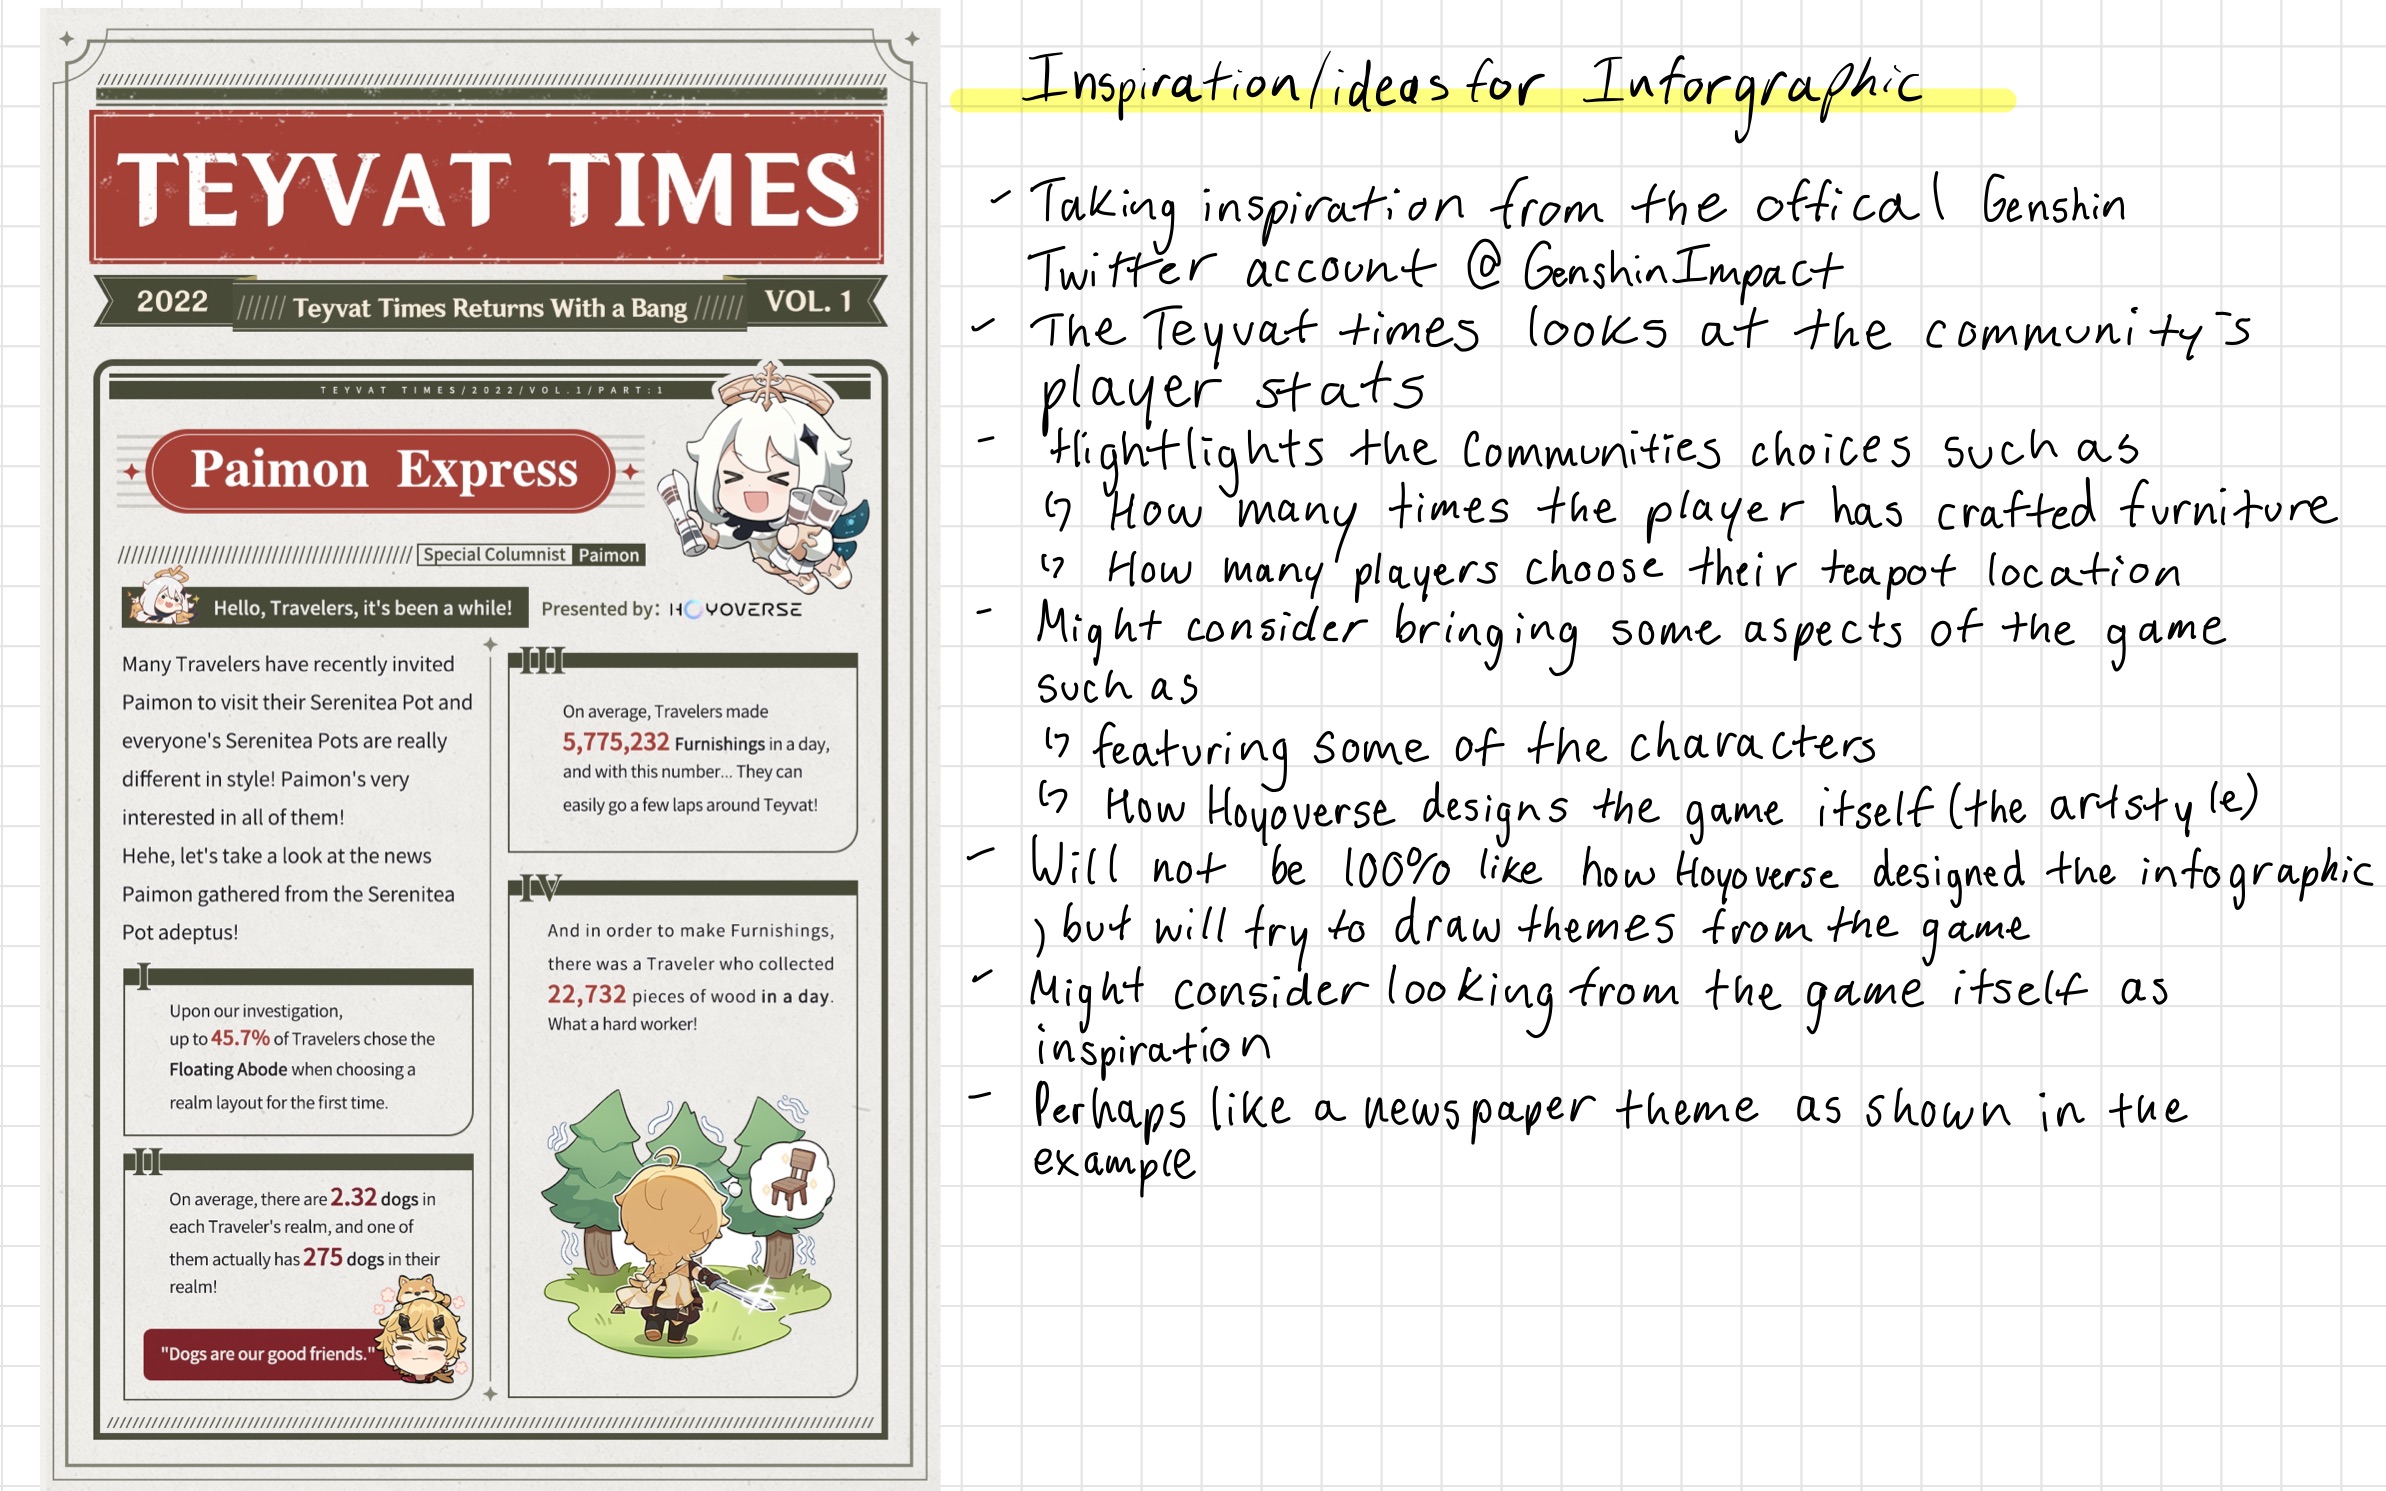 TEYVAT TIMES
2022
Teyvat Times Returns With a Bang
VOL. 1
TEYVAT TIMES/2022/VOL.1/PART:1
Paimon Express
Special Columnist Paimon
Hello, Travelers, it's been a while!
Presented by: HOYOVERSE
Many Travelers have recently invited
Paimon to visit their Serenitea Pot and
everyone's Serenitea Pots are really
different in style! Paimon's very
interested in all of them!
Hehe, let's take a look at the news
Paimon gathered from the Serenitea
Pot adeptus!
I
Upon our investigation,
up to 45.7% of Travelers chose the
Floating Abode when choosing a
realm layout for the first time.
II
On average, there are 2.32 dogs in
each Traveler's realm, and one of
them actually has 275 dogs in their
realm!
"Dogs are our good friends."
III
On average, Travelers made
5,775,232 Furnishings in a day,
and with this number... They can
easily go a few laps around Teyvat!
IV
And in order to make Furnishings,
there was a Traveler who collected
22,732 pieces of wood in a day.
What a hard worker!
Inspiration/ideas for Inforgraphic
- Taking inspiration from the offical Genshin
Twitter account @GenshinImpact
- The Teyvat times looks at the community's
player stats
- Hightlights the Communities choices such as
↳ How many times the player has crafted furniture
↳ How many players choose their teapot location
- Might consider bringing some aspects of the game
such as
↳ featuring some of the characters
↳ How Hoyoverse designs the game itself (the artstyle)
- Will not be 100% like how Hoyoverse designed the infographic
, but will try to draw themes from the game
- Might consider looking from the game itself as
inspiration
- Perhaps like a newspaper theme as shown in the
example